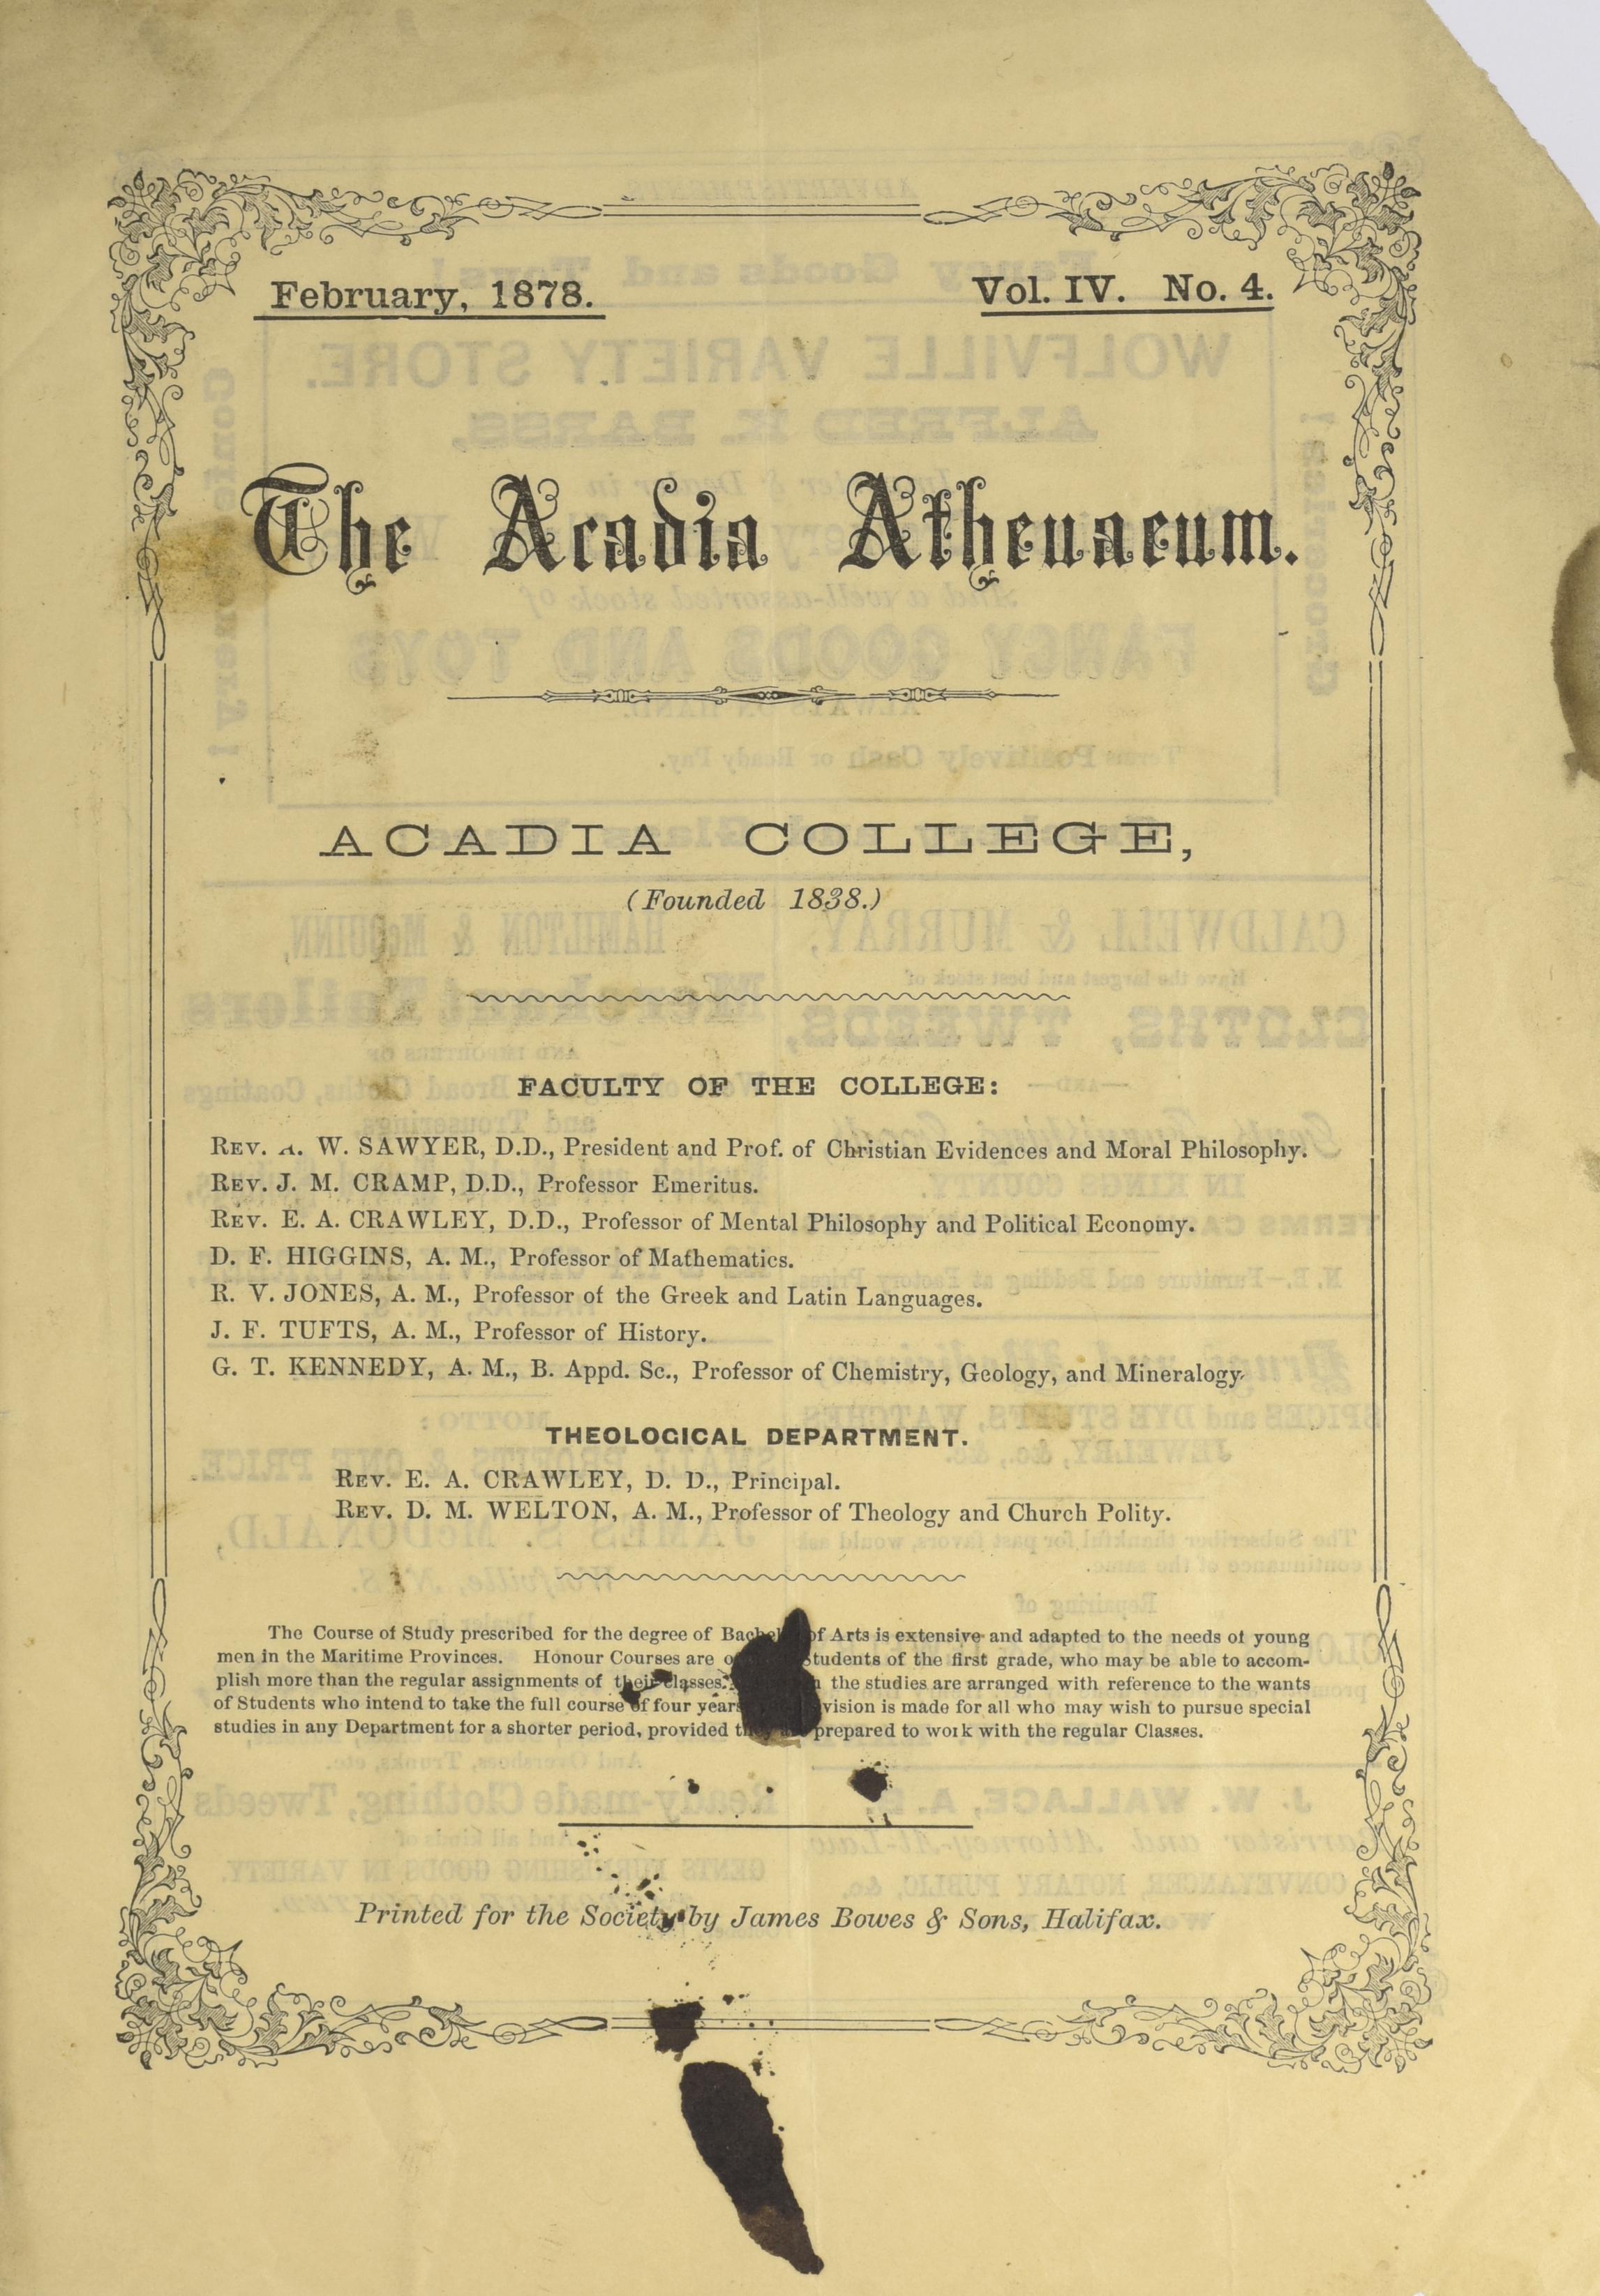 February, 1878.
Vol. IV. No. 4.
The Acadia Athenaeum.
ACADIA COLLEGE,
(Founded 1838.)
FACULTY OF THE COLLEGE:
REV. A. W. SAWYER, D.D., President and Prof. of Christian Evidences and Moral Philosophy.
REV. J. M. CRAMP, D.D., Professor Emeritus.
REV. E. A. CRAWLEY, D.D., Professor of Mental Philosophy and Political Economy.
D. F. HIGGINS, A. M., Professor of Mathematics.
R. V. JONES, A. M., Professor of the Greek and Latin Languages.
J. F. TUFTS, A. M., Professor of History.
G. T. KENNEDY, A. M., B. Appd. Sc., Professor of Chemistry, Geology, and Mineralogy.
THEOLOGICAL DEPARTMENT.
REV. E. A. CRAWLEY, D. D., Principal.
REV. D. M. WELTON, A. M., Professor of Theology and Church Polity.
The Course of Study prescribed for the degree of Bachelor of Arts is extensive and adapted to the needs of young
men in the Maritime Provinces. Honour Courses are Students of the first grade, who may be able to accom-
plish more than the regular assignments of their classes. the studies are arranged with reference to the wants
of Students who intend to take the full course of four years vision is made for all who may wish to pursue special
studies in any Department for a shorter period, provided they are prepared to work with the regular Classes.
Printed for the Society by James Bowes & Sons, Halifax.